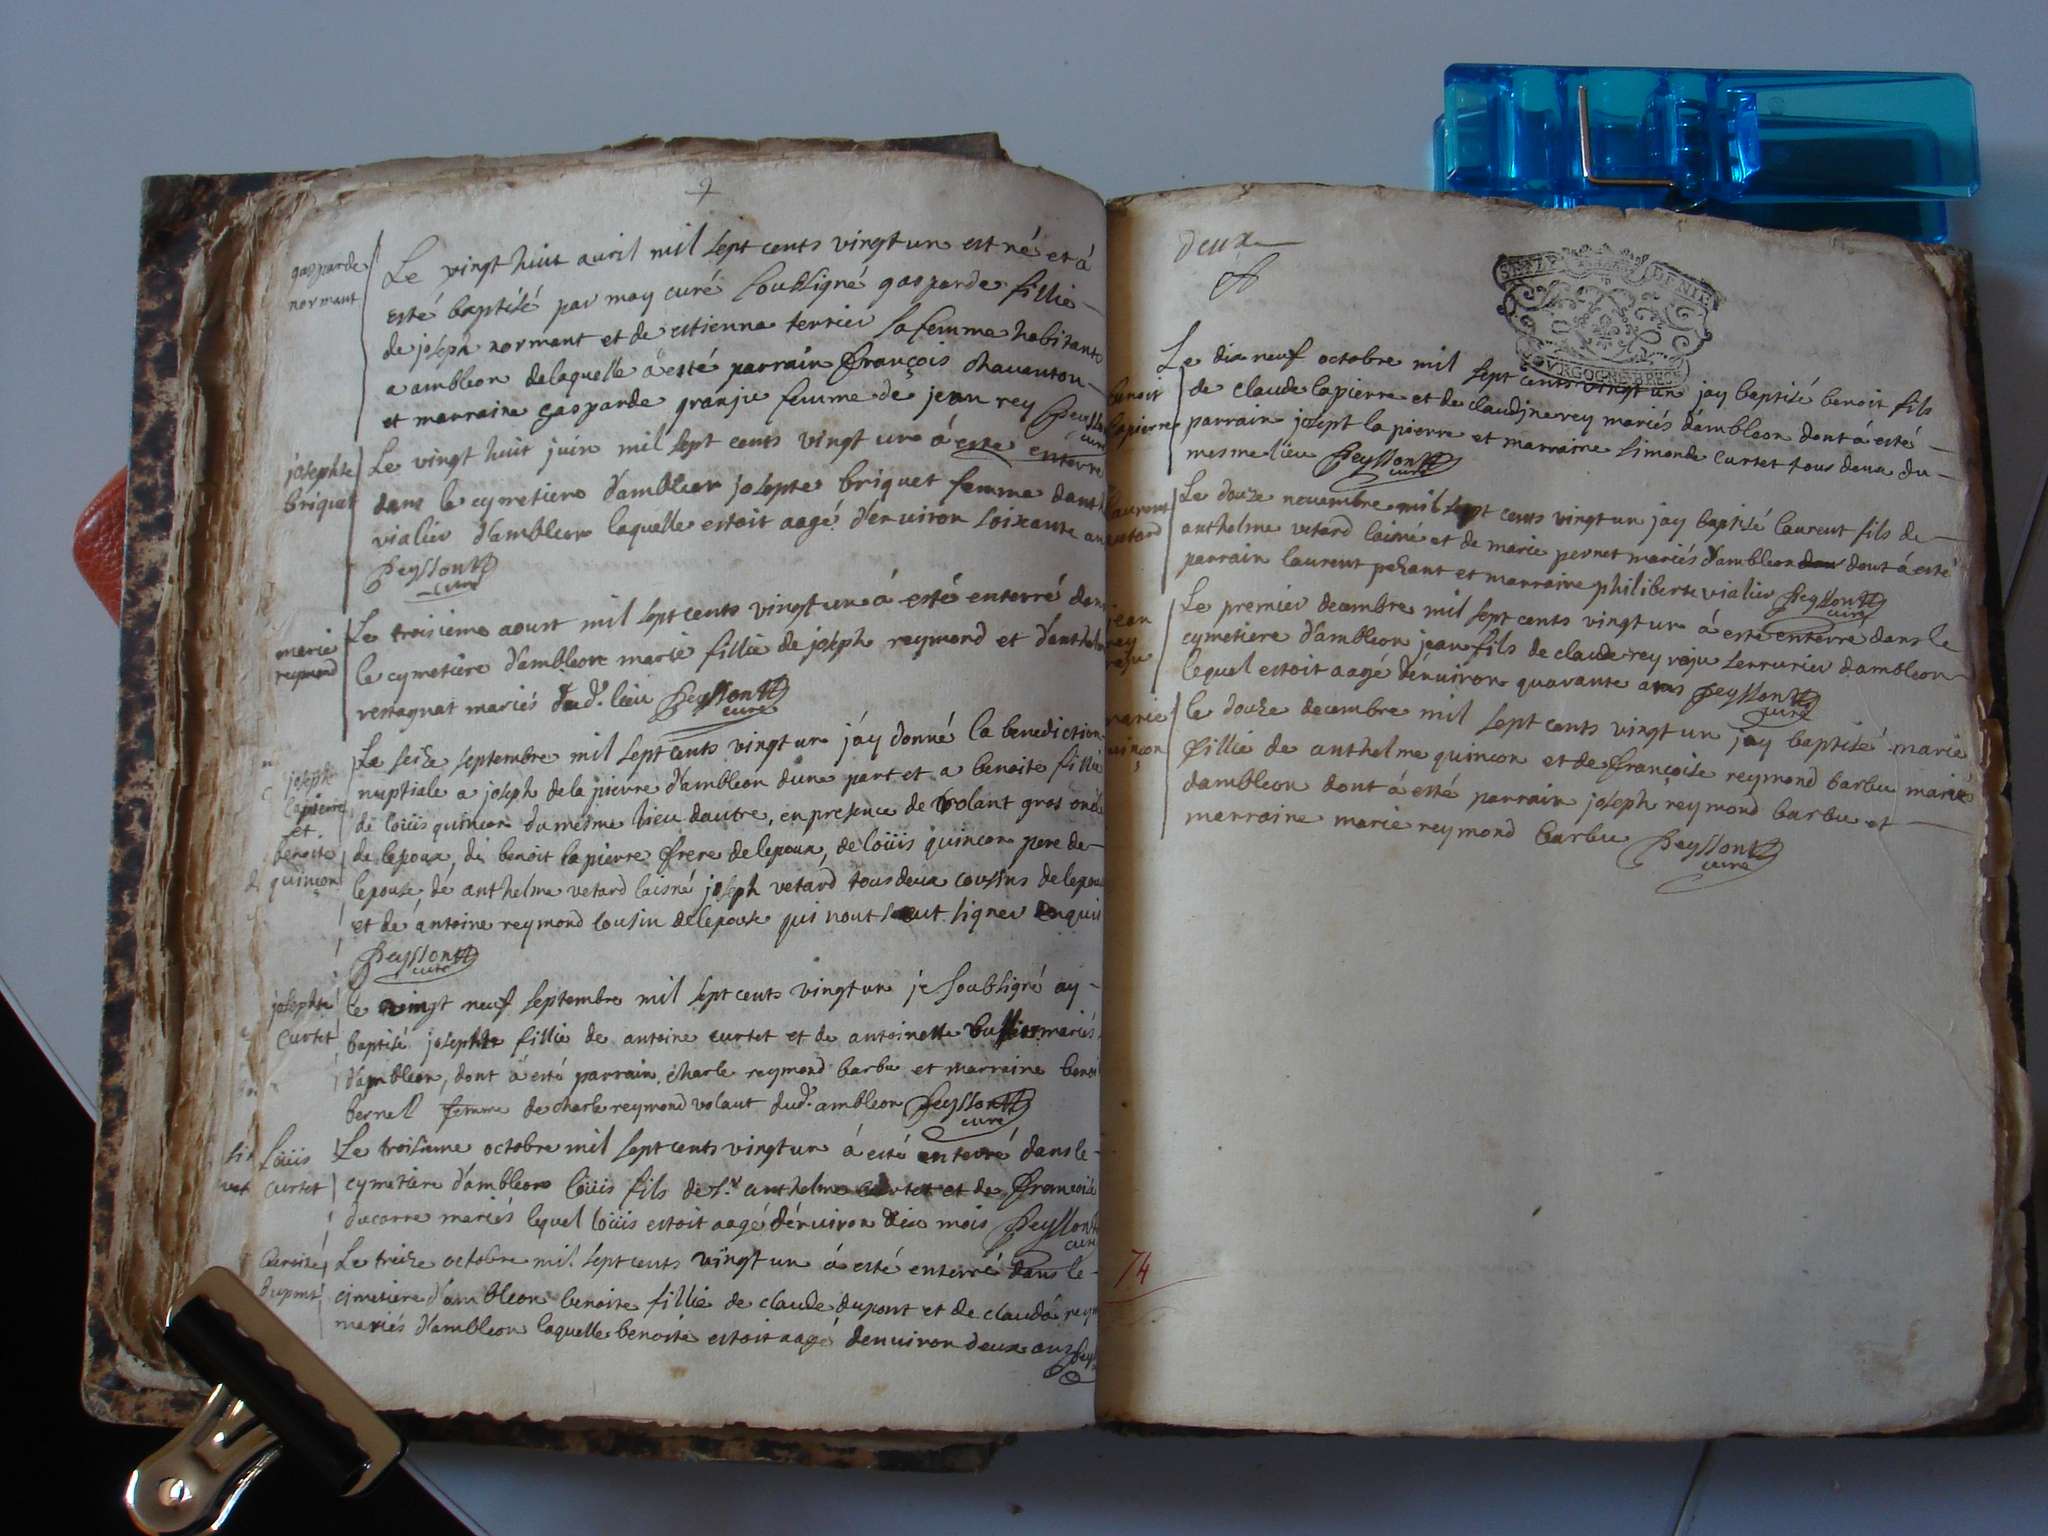 gasparde
normant
Le vingt huit auril mil sept cents vingt un est né et á
esté baptisé par moy curé soubsigné gasparde fillie
de joseph normant et de estienna tertier sa femme habitants
a ambleon delaquelle á esté parrain françois chauenton
et marraine gasparde granjie femme de jean rey Peysson
curé
josephte
briquet
Le vingt huit juin mil sept cents vingt un á esté enterré
dans le cymetiere d'ambleon josepte briquet femme dant
vialier d'ambleon laquelle estoit aagé d'enuiron soixante an
Peysson
curé
marie
reymond
Le troisieme aoust mil sept cents vingt un á esté enterré dans
le cymetiere d'ambleon marie fillie de joseph reymond et d'anthel
restagnat mariés dud. lieu Peysson
curé
joseph
lapierre
et
benoite
quinçon
Le seize septembre mil sept cents vingt un j'ay donné la benediction
nuptiale a joseph de la pierre d'ambleon dune part et a benoite fillie
de loüis quincon du mesme lieu dautre, en presence de rolant gros oncle
de lepoux, de benoit lapierre frere de lepoux, de loüis quincon pere de
lepouse, de anthelme vetard laisné joseph vetard tous deux cousins de lepoux
et de antoine reymond cousin de lepouse qui nont sceut signer enquis
Peysson
curé
josephte
Curtet
le vingt neuf septembre mil sept cents vingt un je soubsigné ay
baptisé josephte fillie de antoine curtet et de antoinette mariés
d'ambleon, dont á esté parrain charle reymond barbu et marraine benoi
bernel femme de charle reymond volant dud. ambleon Peysson
curé
Loüis
Curtet
Le troisieme octobre mil sept cents vingt un á esté enterré dans le
cymetiere d'ambleon loüis fils de Sr. anthelme curtet et de francoise
ducarre mariés lequel loüis estoit aagé dénuiron dix mois Peysson
curé
benoite
dupont
Le treize octobre mil sept cents vingt un á esté enterré dans le
cimetiere d'ambleon benoite fillie de claude dupont et de clauda rey
mariés d'ambleon laquelle benoite estoit aagé denuiron deux ans Pey
deux
SEIZE DENIE
OVRGOGNE BRES
benoit
lapierre
Le dix neuf octobre mil sept cents vingt un jay baptisé benoit fils
de claude lapierre et de claudine rey mariés d'ambleon dont á esté
parrain josept la pierre et marraine simonde curtet tous deux du
mesme lieu Peysson
curé
laurent
vetard
Le douze nouembre mil sept cents vingt un jay baptisé laurent fils de
anthelme vetard laisné et de marie pernet mariés d'ambleon dont á esté
parrain laurent pezant et marraine philiberte vialier Peysson
curé
jean
rey
Le premier decembre mil sept cents vingt un á esté enterré dans le
cymetiere d'ambleon jean fils de claude rey raju serrurier d'ambleon
lequel estoit aagé dénuiron quarante ans Peysson
curé
marie
quinçon
le douze decembre mil sept cents vingt un jay baptisé marie
fillie de anthelme quincon et de françoise reymond barbu mariés
dambleon dont á esté parrain joseph reymond barbu et
marraine marie reymond barbu Peysson
curé
74